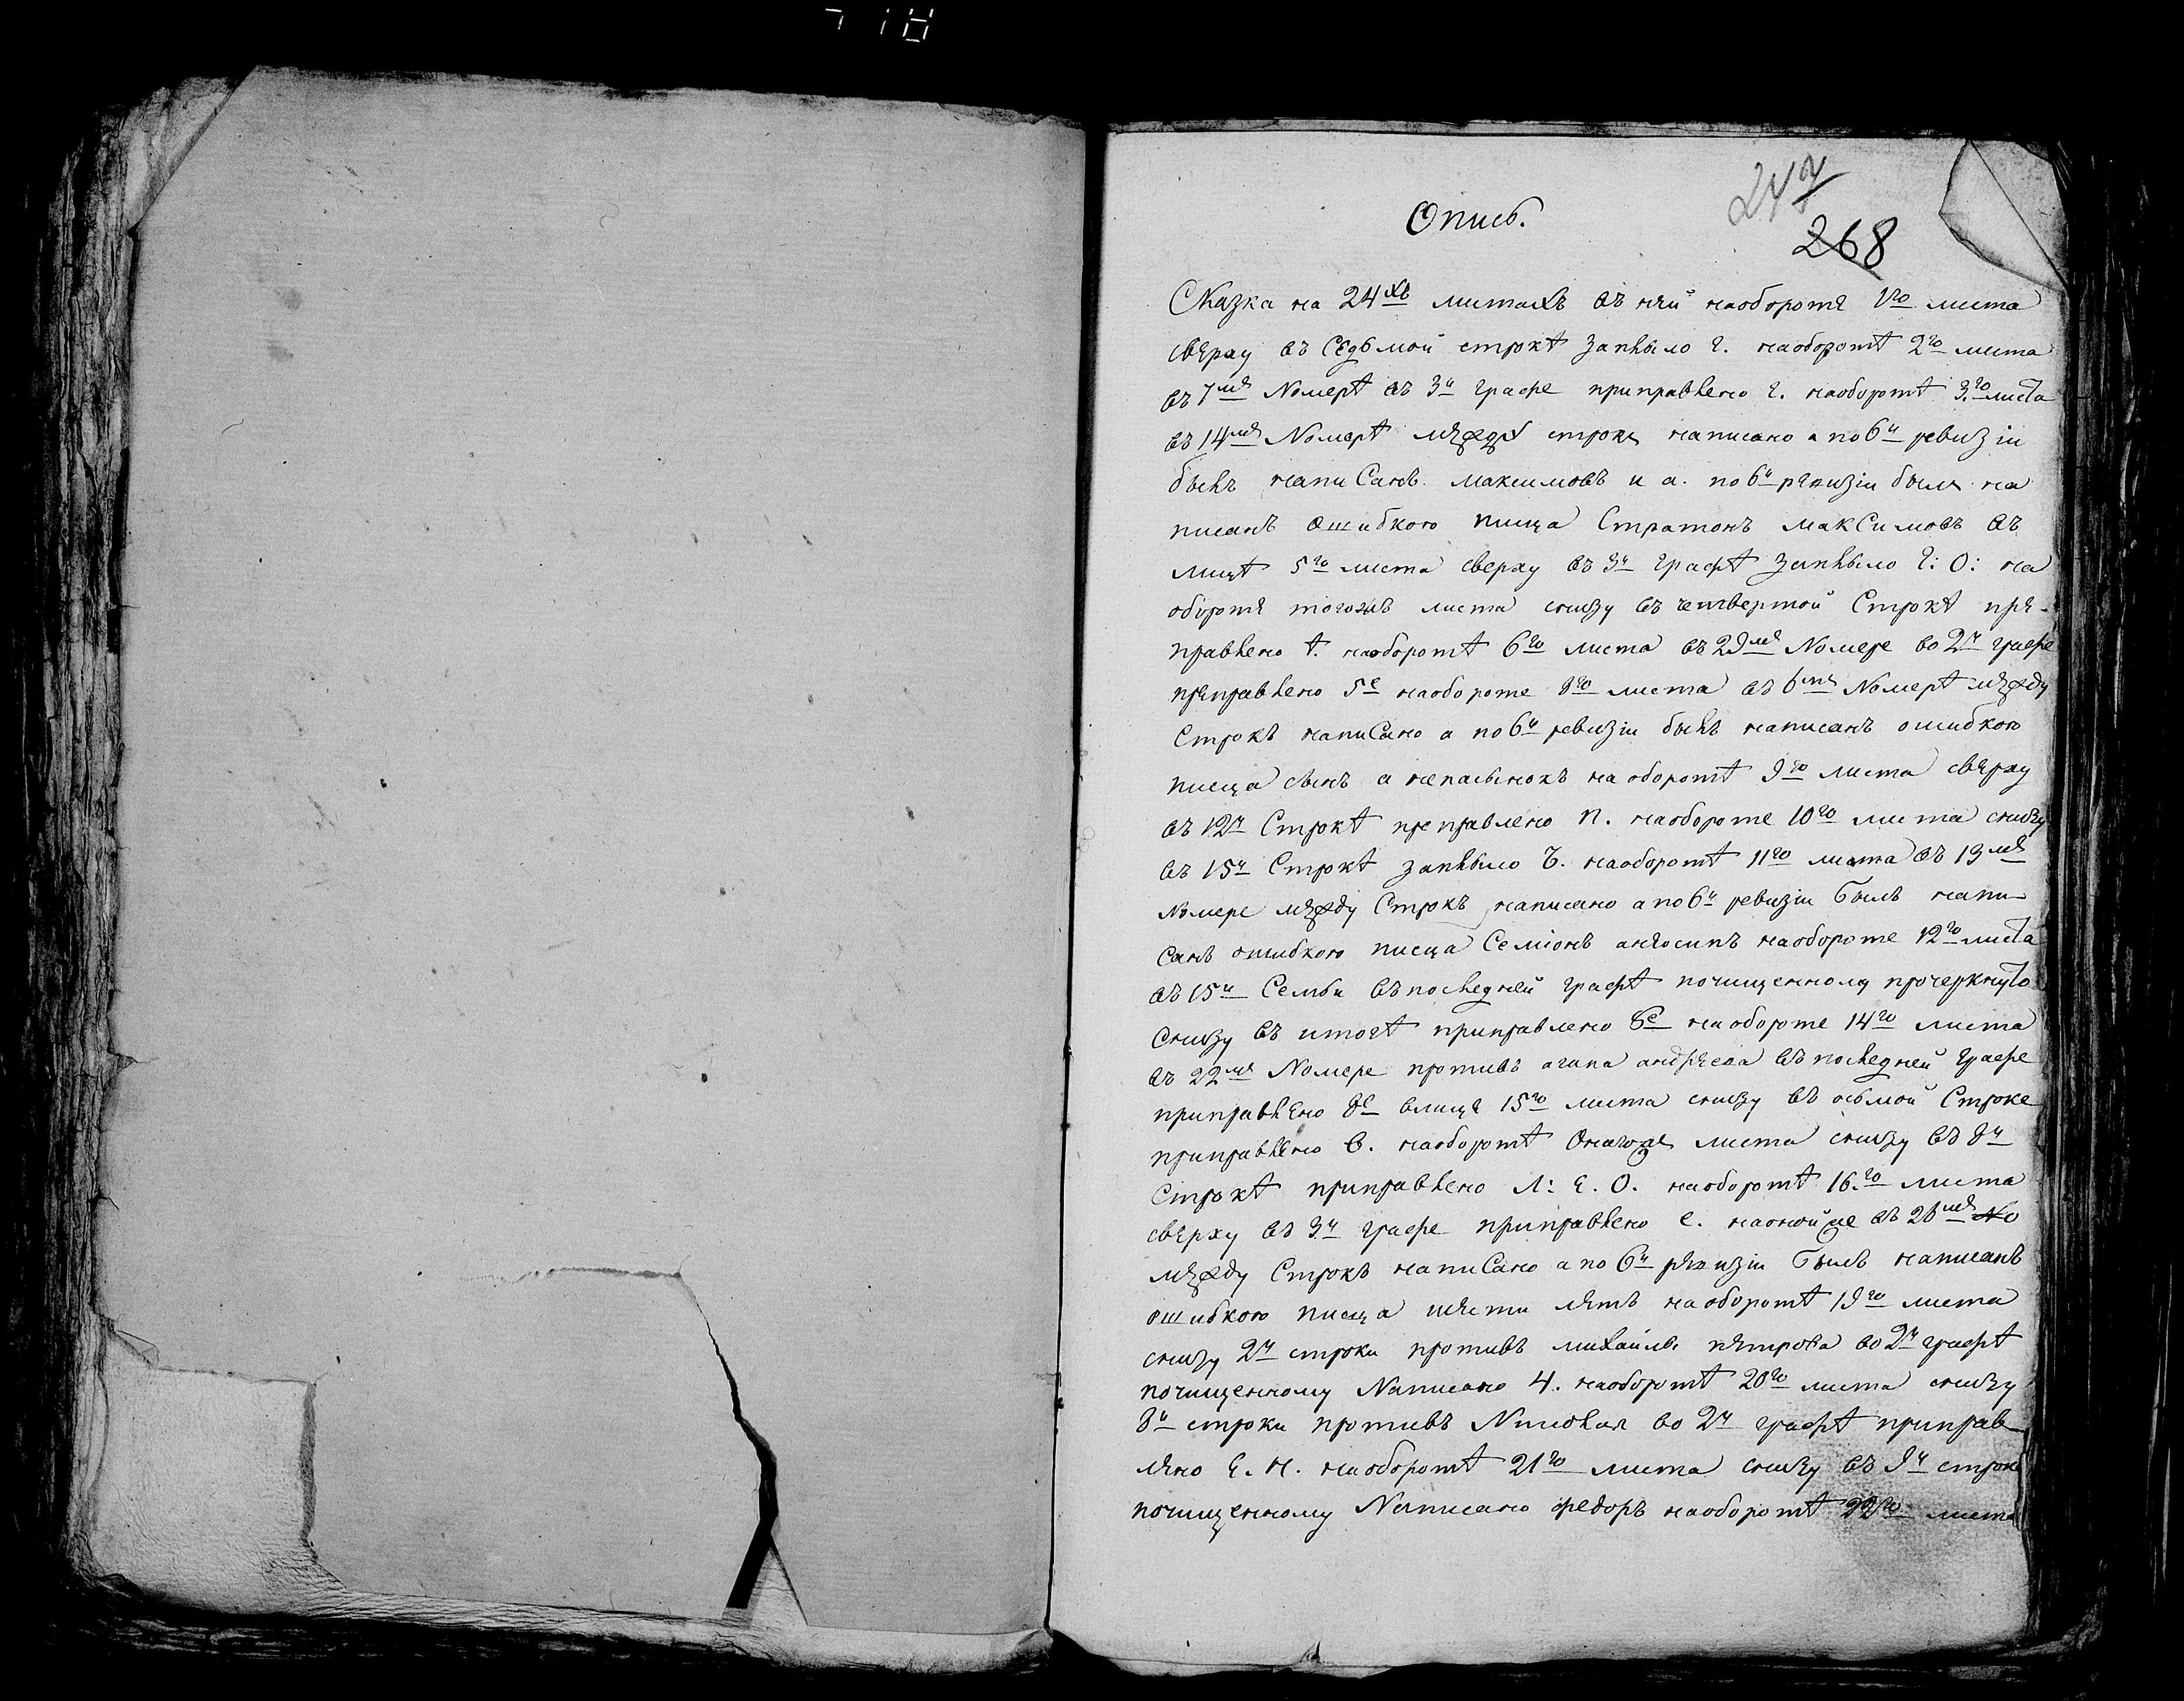 Опись.
247
268
Сказка на 24хъ листахъ въ ней наоборотѣ 1го листа
сверху въ Седьмой строкѣ заплыло г. наоборотѣ 2го листа
въ 7мъ Номерѣ въ 3й графе приправлено г. наоборотѣ 3го листа
въ 14мъ Номерѣ между строкъ написано а по 6й ревизіи
былъ написанъ Максимовъ и а. по 6й ревизіи былъ на
писанъ ошибкою писца Стратонъ максимовъ въ
лицѣ 5го листа сверху въ 3й графѣ заплыло г: О: на
оборотѣ тогожъ листа снизу въ четвертой Строкѣ при-
правлено ѣ. наоборотѣ 6го листа въ 29мъ Номере во 2й графе
приправлено 5е наобороте 8го листа въ 6мъ Номерѣ между
Строкъ написано а по 6й ревизіи былъ написанъ ошибкою
писца сынъ а непасынокъ на оборотѣ 9го листа сверху
въ 12й Строкѣ преправлено п. наобороте 10го листа снизу
въ 15й Строкѣ заплыло Ъ. наоборотѣ 11го листа въ 13мъ
Номере между Строкъ написано а по 6й ревизіи былъ напи-
санъ ошибкою писца Семіонъ анеосипъ наобороте 12го листа
въ 15й Семьи въ последней графѣ почищенному прочеркнуто
снизу въ итогѣ приправлено 8е на обороте 14го листа
въ 22мъ Номере противъ агапа андреева въ последней графе
приправлено 8е влице 15го листа снизу въ осьмой Строке
приправлено в. наоборотѣ Онагоже листа снизу въ 8й
Строкѣ приправлено Л: Е. О. наоборотѣ 16го листа
сверху въ 3й графе приправлено е. наонойже въ 26мъ №
между Строкъ написано а по 6й ревизіи былъ написанъ
ошибкою писца шести летъ наоборотѣ 19го листа
снизу 2й строки противъ михайлы петрова во 2й графѣ
почищенному Написано 4. наоборотѣ 20го листа снизу
8й строки противъ Николая во 2й графѣ приправ-
лено Е. Н. наоборотѣ 21го листа снизу въ 9й строке
почищенному Написано федоръ наоборотѣ листа